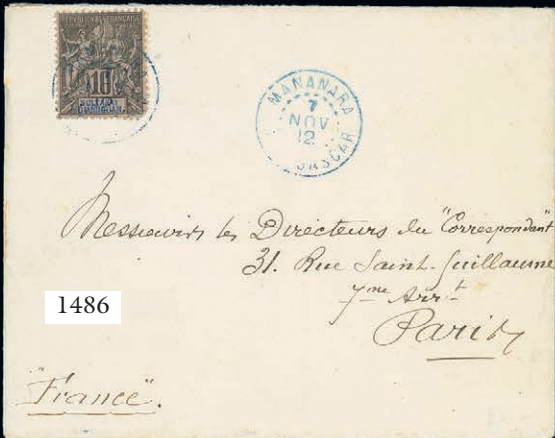 RÉPUBLIQUE FRANÇAISE
10
SULTANAT
D'ANJOUAN
MANANARA
7
NOV
12
Messieurs les Directeurs du "Correspondant"
31. Rue Saint-Guillaume
7me Arrt
Paris
1486
"France".